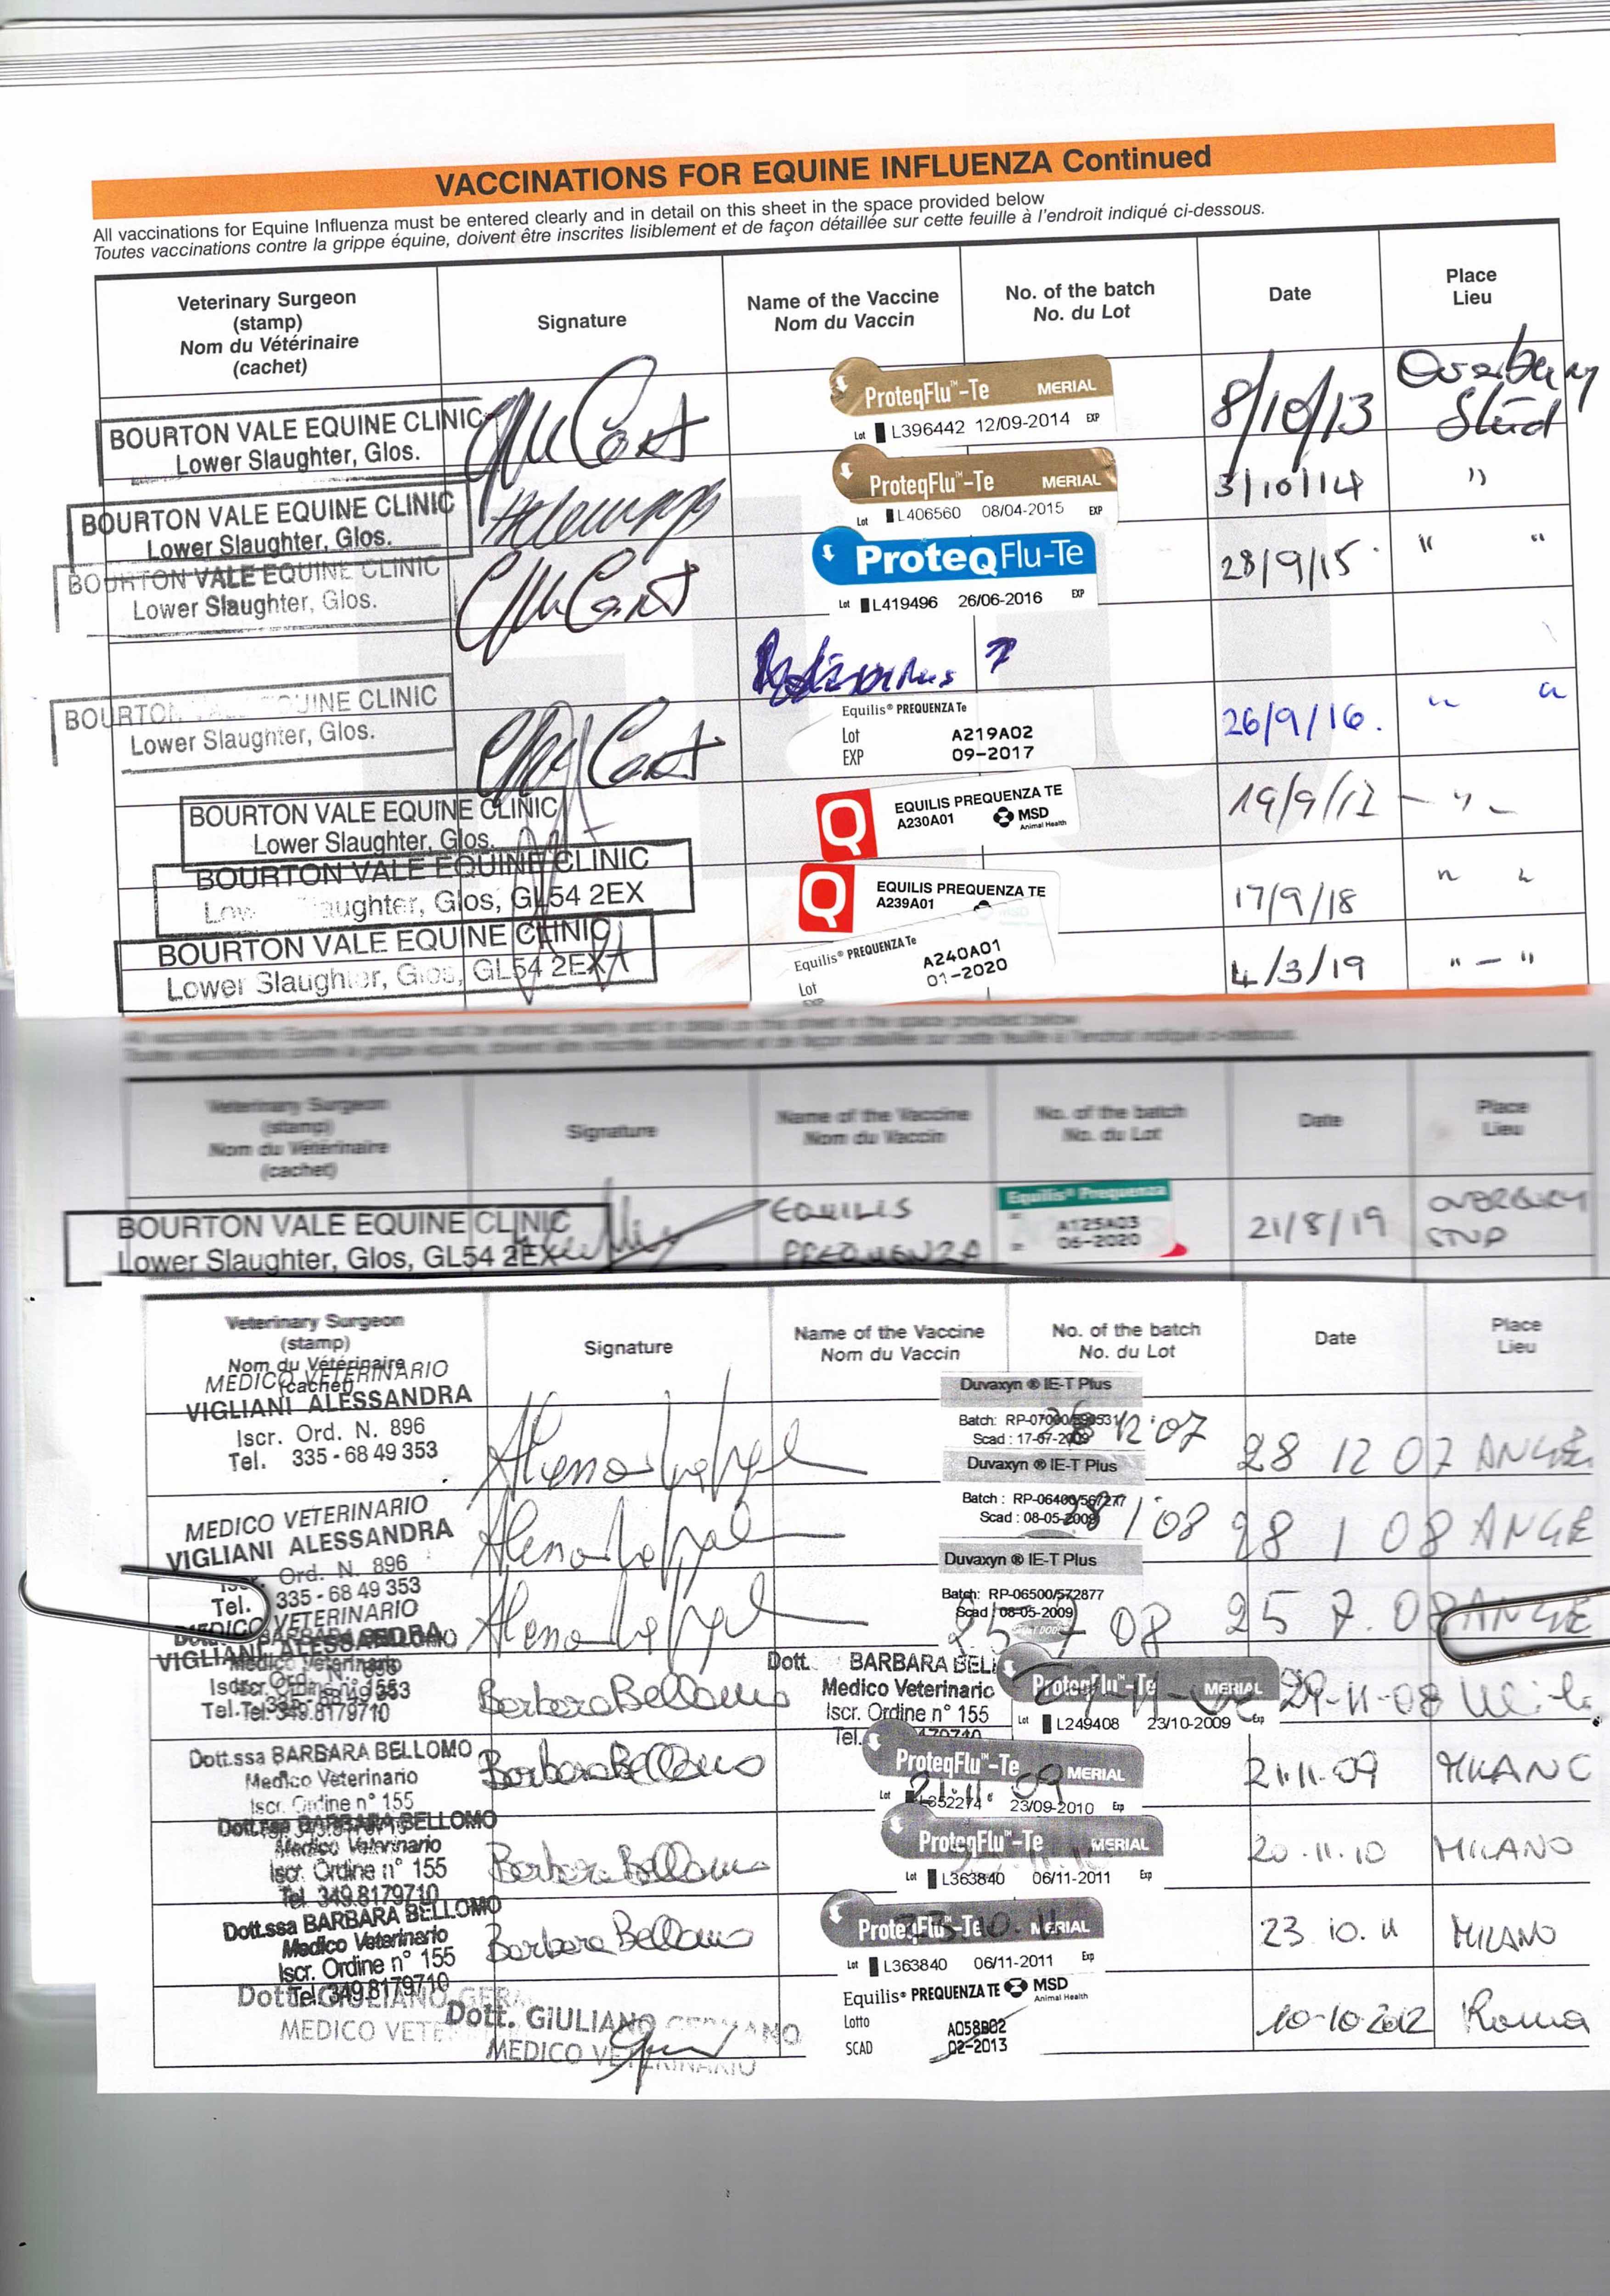 VACCINATIONS FOR EQUINE INFLUENZA Continued
All vaccinations for Equine Influenza must be entered clearly and in detail on this sheet in the space provided below
Toutes vaccinations contre la grippe équine, doivent être inscrites lisiblement et de façon détaillée sur cette feuille à l'endroit indiqué ci-dessous.
Veterinary Surgeon
(stamp)
Nom du Vétérinaire
(cachet)
Signature
Name of the Vaccine
Nom du Vaccin
No. of the batch
No. du Lot
Date
Place
Lieu
BOURTON VALE EQUINE CLINIC
Lower Slaughter, Glos.
ProteqFlu™-Te MERIAL
Lot L396442 12/09/2014 EXP
8/10/13
Overbury
Stud
BOURTON VALE EQUINE CLINIC
Lower Slaughter, Glos.
ProteqFlu™-Te MERIAL
Lot L406560 08/04-2015 EXP
3/10/14
"
BOURTON VALE EQUINE CLINIC
Lower Slaughter, Glos.
ProteqFlu-Te
Lot L419496 26/06-2016 EXP
28/9/15
" "
BOURTON VALE EQUINE CLINIC
Lower Slaughter, Glos.
Equilis® PREQUENZA Te
Lot A219A02
EXP 09-2017
26/9/16.
" "
BOURTON VALE EQUINE CLINIC
Lower Slaughter, Glos.
EQUILIS PREQUENZA TE
A230A01 MSD
Animal Health
19/9/17
- " -
BOURTON VALE EQUINE CLINIC
Lower Slaughter, Glos, GL54 2EX
EQUILIS PREQUENZA TE
A239A01
17/9/18
" "
BOURTON VALE EQUINE CLINIC
Lower Slaughter, Glos, GL54 2EX
Equilis® PREQUENZA Te
Lot A240A01
EXP 01-2020
4/3/19
" - "
All vaccinations for Equine Influenza must be entered clearly and in detail on this sheet in the space provided below
Toutes vaccinations contre la grippe équine, doivent être inscrites lisiblement et de façon détaillée sur cette feuille à l'endroit indiqué ci-dessous.
Veterinary Surgeon
(stamp)
Nom du Vétérinaire
(cachet)
Signature
Name of the Vaccine
Nom du Vaccin
No. of the batch
No. du Lot
Date
Place
Lieu
BOURTON VALE EQUINE CLINIC
Lower Slaughter, Glos, GL54 2EX
EQUILIS
PREQUENZA
Equilis® Prequenza
A125A03
06-2020
21/8/19
OVERBURY
STUD
Veterinary Surgeon
(stamp)
Nom du Vétérinaire
(cachet)
Signature
Name of the Vaccine
Nom du Vaccin
No. of the batch
No. du Lot
Date
Place
Lieu
MEDICO VETERINARIO
VIGLIANI ALESSANDRA
Iscr. Ord. N. 896
Tel. 335-68 49 353
Duvaxyn ® IE-T Plus
Scad : 17-07-2009
28 12 07
MEDICO VETERINARIO
VIGLIANI ALESSANDRA
Iscr. Ord. N. 896
Tel. 335-68 49 353
Duvaxyn ® IE-T Plus
Batch : RP-06400/567277
Scad : 08-05-2009
28 1 08
MEDICO VETERINARIO
VIGLIANI ALESSANDRA
Duvaxyn ® IE-T Plus
Batch: RP-06500/572877
Scad : 08-05-2009
25 7 08
25 7. 08
Medico Veterinario
Iscr. Ordine n° 155
Tel. 349.8179710
Barbara Bellomo
Dott. BARBARA BELL
Medico Veterinario
Iscr. Ordine n° 155
Tel.
ProteqFlu™-Te MERIAL
Lot L249408 23/10-2009 Exp
29-11-08
Dott.ssa BARBARA BELLOMO
Medico Veterinario
Iscr. Ordine n° 155
Barbara Bellomo
ProteqFlu™-Te MERIAL
Lot L352274 23/09-2010 Exp
21.11.09
MILANO
Dott.ssa BARBARA BELLOMO
Medico Veterinario
Iscr. Ordine n° 155
Tel. 349.8179710
Barbara Bellomo
ProteqFlu™-Te MERIAL
Lot L363840 06/11-2011 Exp
20.11.10
MILANO
Dott.ssa BARBARA BELLOMO
Medico Veterinario
Iscr. Ordine n° 155
Tel. 349.8179710
Barbara Bellomo
ProteqFlu™-Te MERIAL
Lot L363840 06/11-2011 Exp
23. 10. 11
MILANO
Dott. GIULIANO GERMANO
MEDICO VETERINARIO
Equilis® PREQUENZA TE MSD
Animal Health
Lotto A058B02
SCAD 02-2013
10-10-2012
Roma